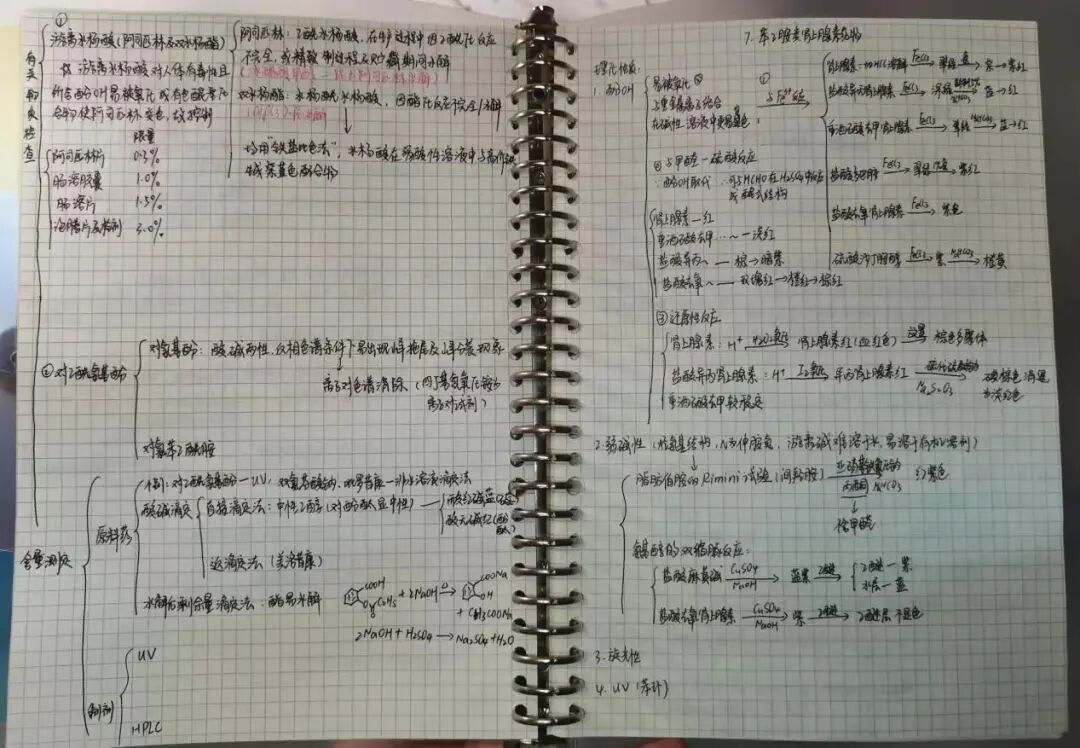 ①
游离水杨酸(阿司匹林及双水杨酯)
∵ 游离水杨酸对人体有毒性且
所含酚OH易被氧化成有色醌类化
合物使阿司匹林变色,故控制
有关物质检查
限量
阿司匹林片 0.3%
肠溶胶囊 1.0%
肠溶片 1.5%
泡腾片及栓剂 3.0%
阿司匹林:乙酰水杨酸,在生产过程中因乙酰化反应
不完全,或精致制过程及贮藏期间水解
双水杨酯:水杨酰水杨酸,因酯化反应不完全/水解
均用"铁盐比色法",水杨酸在弱酸性溶液中与高价铁
生成紫堇色配合物
②对乙酰氨基酚
对氨基酚:酸碱两性,反相色谱条件下易出现峰拖尾及峰分裂现象
离子对色谱消除(四丁基氢氧化铵为
离子对试剂)
对氯苯乙酰胺
含量测定
原料药
例:对乙酰氨基酚—UV,
酸碱滴定
直接滴定法:中性乙醇(对酚酞显中性)
返滴定法
水解后剩余量滴定法:酯易水解
COOH
+ 2NaOH △→
COONa
OH
+ CH3COONa
2NaOH + H2SO4 → Na2SO4 + H2O
制剂
UV
HPLC
7. 苯乙胺类肾上腺素药物
理化性质:
1. 酚OH
易被氧化②
与重金属离子络合
在碱性溶液中更易变色
① 与Fe³⁺络
肾上腺素:加HCl溶解 FeCl3→ 翠绿 氨→ 紫→紫红
盐酸异丙肾上腺素 FeCl3→ 深绿 NaHCO3→ 蓝→红
重酒石酸去甲肾上腺素 FeCl3→ 翠绿 NaHCO3→ 蓝→红
盐酸多巴胺 FeCl3→ 墨绿 → 紫红
盐酸去氧肾上腺素 FeCl3→ 紫色
硫酸沙丁胺醇 FeCl3→ 紫 NaHCO3→ 橙黄
②与甲醛—硫酸反应
∵酚OH取代 ∴可与HCHO在H2SO4中反应
成醌式结构
肾上腺素—红
重酒石酸去甲…~—淡红
盐酸异丙~—棕→暗紫
盐酸去氧~—玫瑰红→橙红→棕红
③还原性反应
肾上腺素:H⁺ H2O2氧化→ 肾上腺素红(血红色) 放置→ 棕色多聚体
盐酸异丙肾上腺素:H⁺ I2氧化→ 异丙肾上腺素红 硫代硫酸钠 Na2S2O3→ 碘棕色消退
为淡红色
重酒石酸去甲较稳定
2. 弱碱性(烃氨基结构,N为仲胺氮,游离碱难溶于水,易溶于有机溶剂)
脂肪伯胺的Rimini试验(间羟胺) 亚硝基铁氰化钠 丙酮 NaHCO3→ 红紫色
除甲醛
氨基醇的双缩脲反应:
盐酸麻黄碱 CuSO4 NaOH→ 蓝紫 乙醚→ 乙醚—紫
水层—蓝
盐酸去氧肾上腺素 CuSO4 NaOH→ 紫 乙醚→ 乙醚层不显色
3. 旋光性
4. UV(苯环)